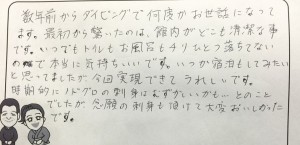 数年前からダイビングで何度かお世話になって
ます。最初から驚いたのは、館内がどこも清潔な事
です。いつでもトイレもお風呂もチリひとつ落ちてない
ので本当に気持ちいいです。いつか宿泊もしてみたい
と思ってましたが今回実現できてうれしいです。
時期的にノドグロの刺身はむずかしいかも…とのこと
でしたが念願の刺身も頂けて大変おいしかった
です。